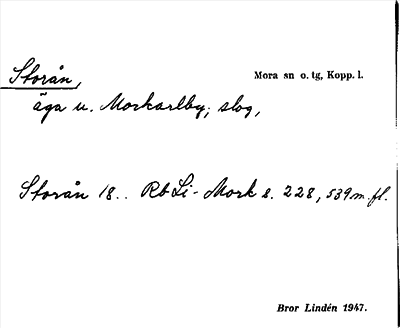 Storån,
Mora sn o. tg, Kopp. l.
äga u. Morkarlby, slog,
Storån 18.. Rb Li-Mork s. 228, 539 m. fl.
Bror Lindén 1947.